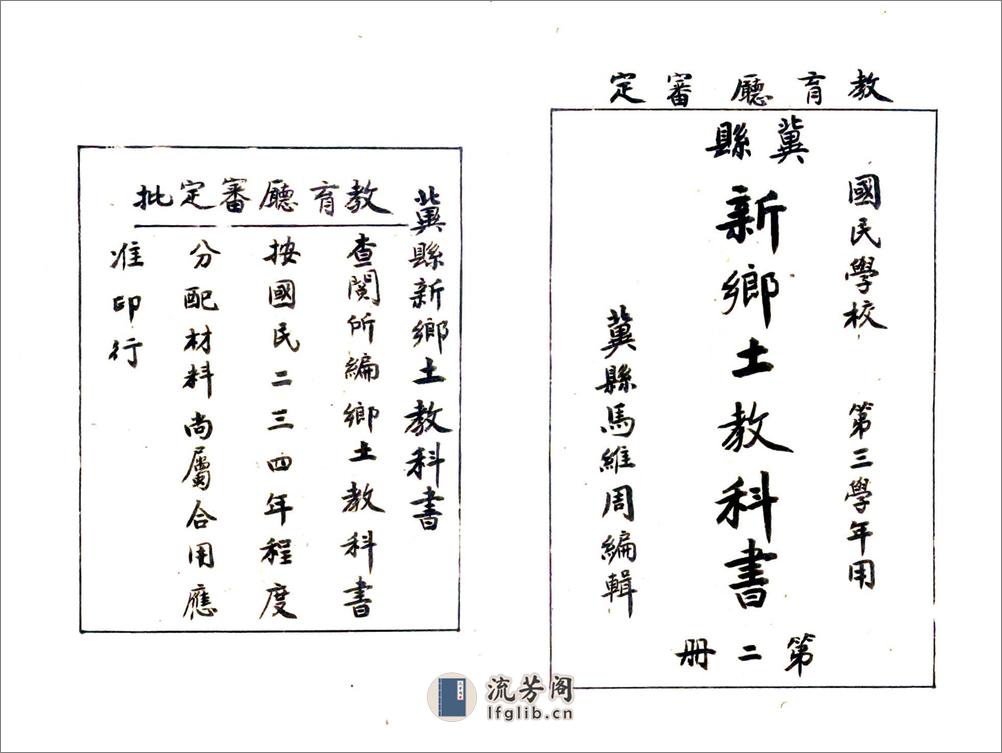 教育廳審定
國民學校 第三學年用
冀縣
新鄉土教科書
冀縣馬維周編輯
第二册
冀縣新鄉土教科書
教育廳審定批
查閱所編鄉土教科書
按國民二三四年程度
分配材料尚屬合用應
准印行
流芳阁
lfglib.cn